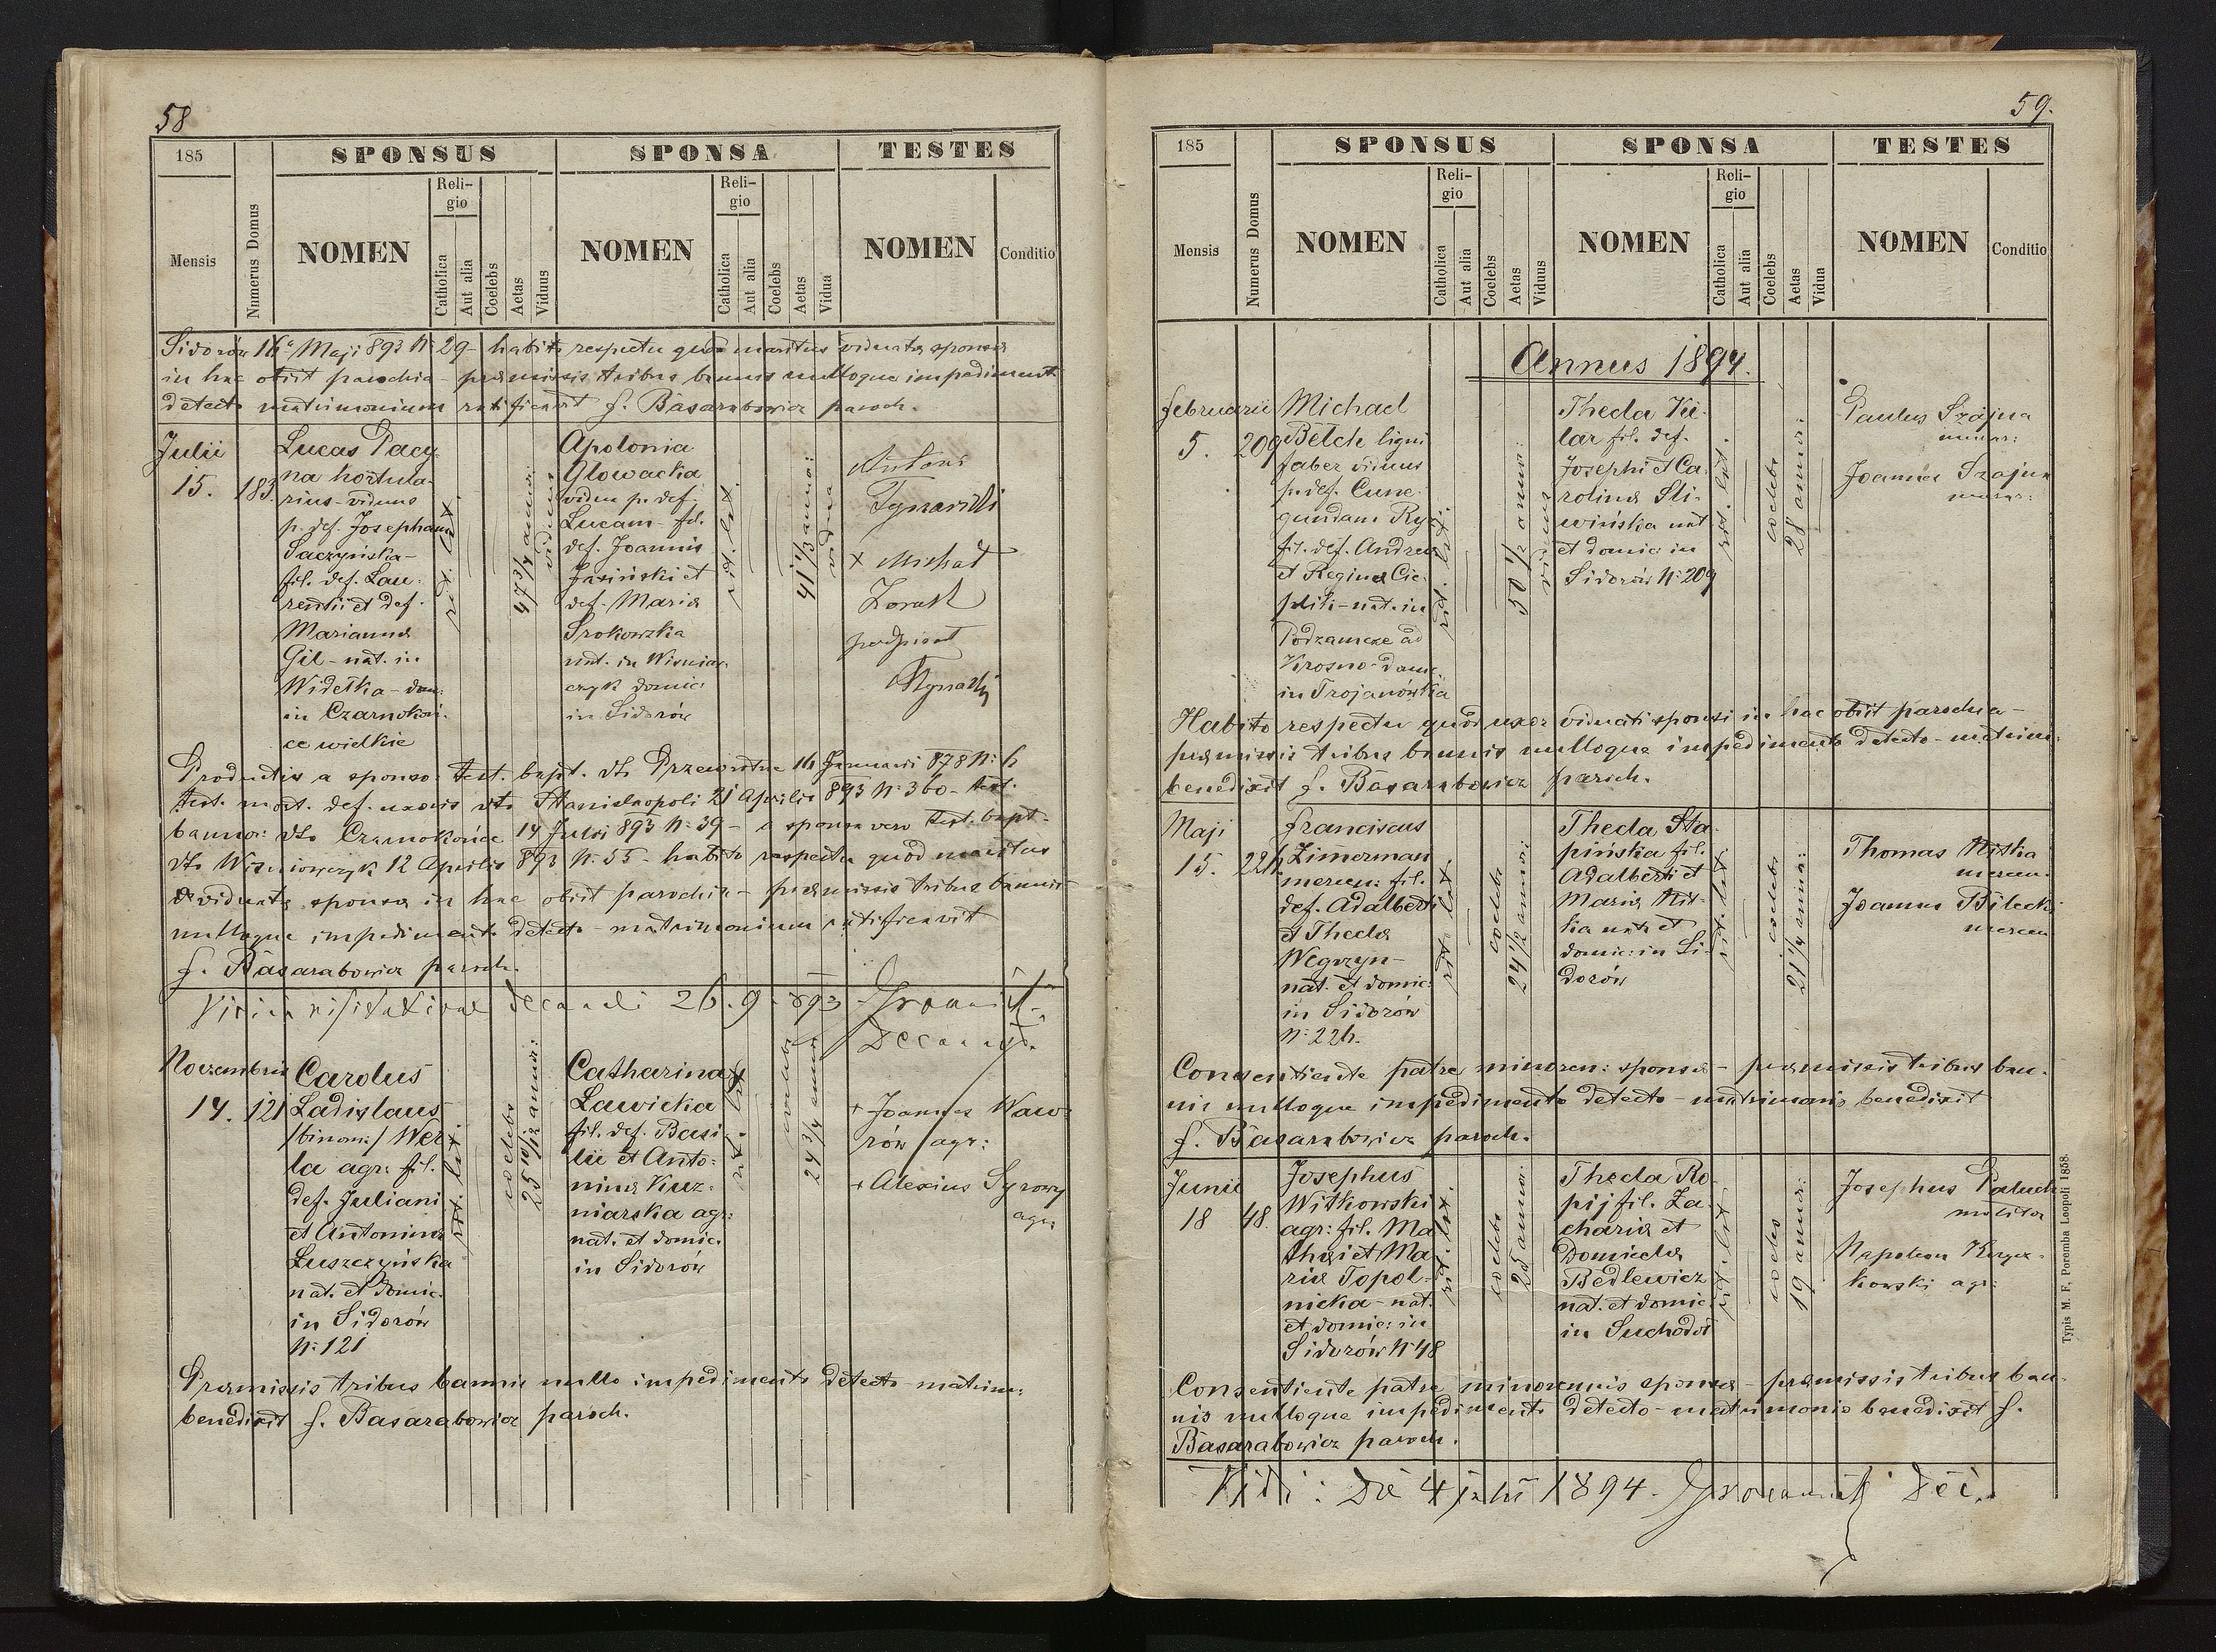 58
185
SPONSUS
SPONSA
TESTES
Mensis
Numerus Domus
NOMEN
Reli-
gio
Catholica
Aut alia
Coelebs
Aetas
Viduus
NOMEN
Reli-
gio
Catholica
Aut alia
Coelebs
Aetas
Vidua
NOMEN
Conditio
Sidorów 16a Maji 893 N: 29 - habito respectu quod maritus viduatæ sponsæ
in hac obiit parochia - præmissis tribus bannis nulloque impedimento
detecto matrimonium ratificavit f. Basarabowicz paroch.
Julii
15.
183.
Lucas Pacy
na hortula
rius - viduus
p. def. Josepham
Saczyńska -
fil. def. Lau:
rentii et def.
Mariannæ
Gil - nat. in
Widełka - dom:
in Czarnokoń:
ce wielkie
rit. lat.
47 3/4 annor:
viduus
Apolonia
Głowacka
vidua p. def.
Lucam - fil.
def. Joannis
Jasiński et
def. Mariæ
Srokowska
nat. in Wisniow
czyk domic:
in Sidorów
rit. lat.
41 1/3 annor:
vidua
Antoni
+ Michał
podpisał
Productis a sponso: test. bapt. dto Przewrotne 16 Januarii 878 N: 6
test. mort. def. uxoris dto Stanislaopoli 21 Aprilis 893 N: 360 - test.
bannor: dto Czarnokońce 14 Julii 893 N: 39 - a sponsa vero test. bapt.
dto Wisniowczyk 12 Aprilis 893 N: 55 - habito respectu quod maritus
viduatæ sponsæ in hac obiit parochia - præmissis tribus bannis
nulloque impedimento detecto - matrimonium ratificavit
f. Basarabowicz paroch.
Vidi in visitatione decanali 26. 9. 893
Decan
Novembris
14.
121
Carolus
Ladislaus
/binom:/ Wer
la agr: fil.
def. Juliani
et Antoninæ
Łuszczyńska
nat. et domic:
in Sidorów
N: 121
rit. lat.
coelebs
25 10/12 annor:
Catharina
Ławicka
fil. def. Basi
lii et Anto:
ninæ Kuz:
niarska agr:
nat. et domic.
in Sidorów
rit. lat.
coelebs
24 3/4 annor:
+ Joannes Waw
rów agr:
+ Alexius Syrowy
agr:
Præmissis tribus bannis nullo impedimento detecto matrim:
benedixit f. Basarabowicz paroch.
59.
185
SPONSUS
SPONSA
TESTES
Mensis
Numerus Domus
NOMEN
Reli-
gio
Catholica
Aut alia
Coelebs
Aetas
Viduus
NOMEN
Reli-
gio
Catholica
Aut alia
Coelebs
Aetas
Vidua
NOMEN
Conditio
Annus 1894.
februarii
5.
209
Michael
Bełch ligni
faber viduus
p. def. Cune
gundam Ryż
fil. def. Andreæ
et Reginæ Cie
plik - nat. in
Podzamcze ad
Krosno - domic:
in Trojanówka
rit. lat.
50 1/2 annor:
viduus
Theda Ki
lar fil. def.
Josephi et Ca
rolinæ Sli
wińska nat
et domic in
Sidorów N: 209
rit. lat.
coelebs
28 annor:
Paulus Szajna
murar:
Joannes Szajna
murar:
Habito respectu quod uxor viduati sponsi in hac obiit parochia -
præmissis tribus bannis nulloque impedimento detecto - matrim:
benedixit f. Basarabowicz paroch.
Maji
15.
226
franciscus
Zimerman
mercen: fil.
def. Adalberti
et Thedæ
Węgrzyn -
nat. et domic:
in Sidorów
N: 226.
rit. lat.
coelebs
24 1/2 annor:
Theda Sta
pińska fil.
Adalberti et
Mariæ Nit
ka nat. et
domic: in Si
dorów
rit. lat.
coelebs
21 1/4 annor:
Thomas Nitka
mercen.
Joannes Bilecki
mercen
Consentiente patre minoren: sponsæ - præmissis tribus ban:
nis nulloque impedimento detecto - matrimonio benedixit
f. Basarabowicz paroch.
Junii
18
48.
Josephus
Witkowski
agr: fil. Ma
thæi et Ma
riæ Topol
nicka - nat.
et domic: in
Sidorów N: 48
rit. lat.
coelebs
25 annor:
Theda Ro
pij fil. Za
chariæ et
Domicelæ
Bedlewicz
nat. et domic
in Suchodół
rit. lat.
coelebs
19 annor:
Josephus Paluch
molitor
Napoleon
kowski agr:
Consentiente patre minorennis sponsæ - præmissis tribus ban
nis nulloque impedimento detecto - matrimonio benedixit f.
Basarabowicz paroch.
Vidi: Die 4 julii 1894.
Typis M. F. Poremba Leopoli 1858.